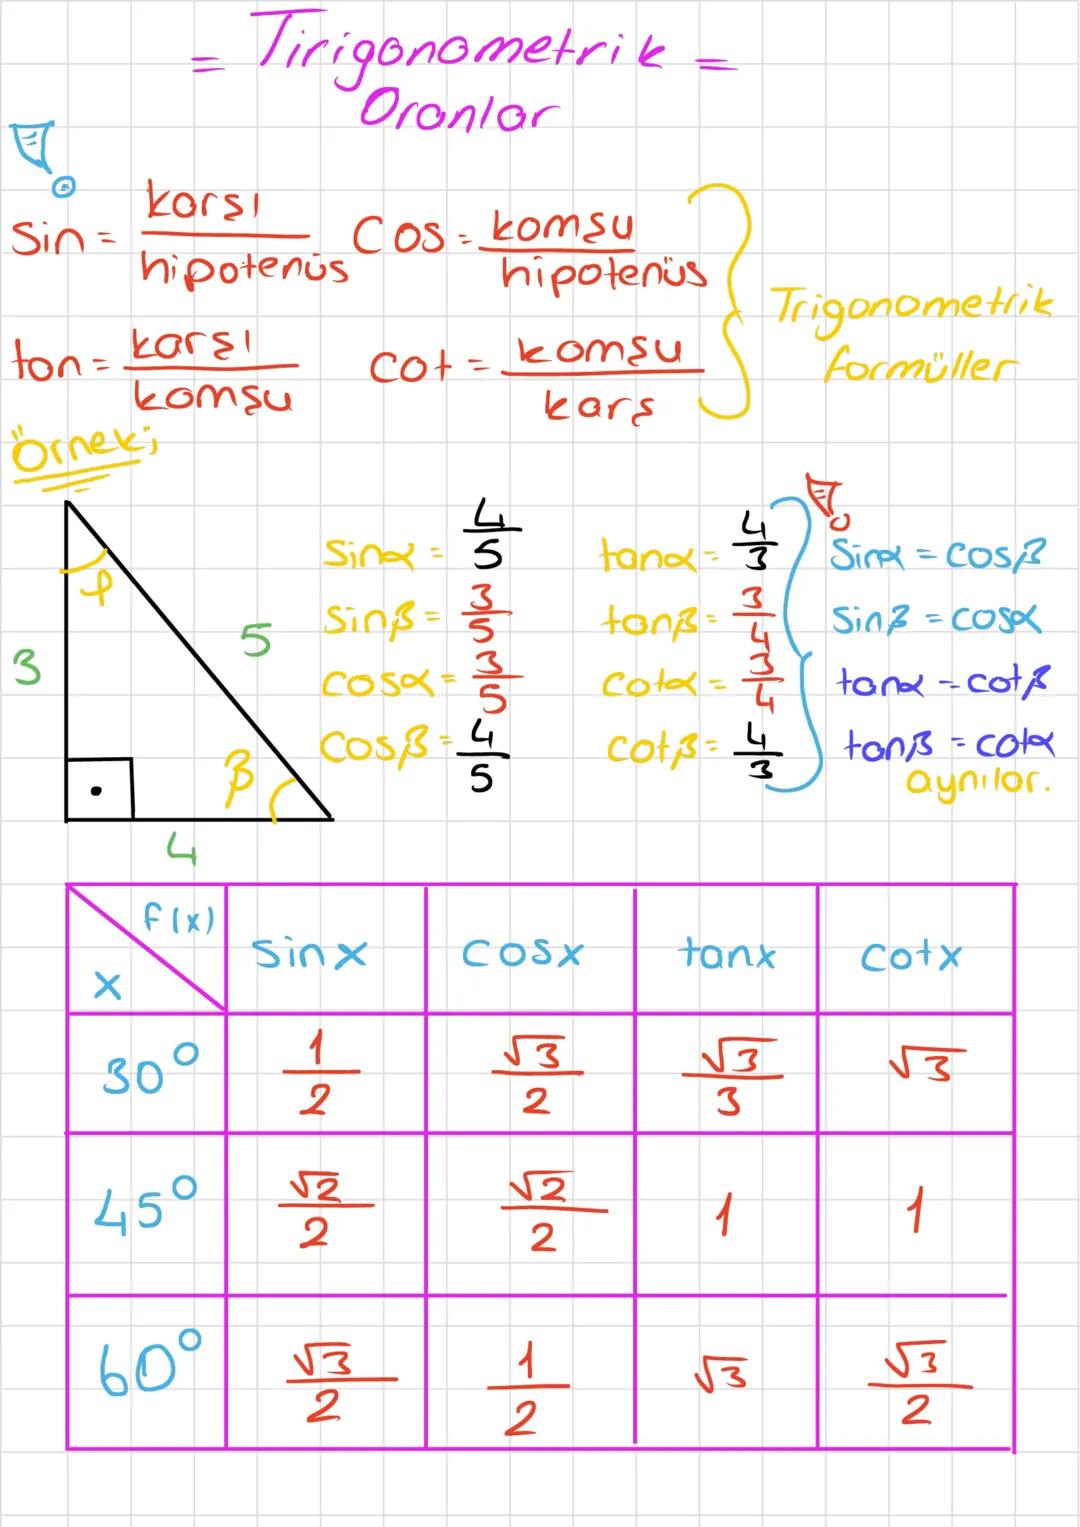 = Tirigonometrik =
Oranlar
Sin = karşı / hipotenüs Cos = komşu / hipotenüs
tan = karşı / komşu cot = komşu / karş
Trigonometrik
formüller
Örnek;
3
5
β
4
sinα = 4/5 tanα = 4/3
sinβ = 3/5 tanβ = 3/4
cosα = 3/5 cotα = 3/4
cosβ = 4/5 cotβ = 4/3
Sinα = cosβ
sinβ = cosα
tanα = cotβ
tanβ = cotα
aynılar.
x f(x) sinx cosx tanx cotx
30° 1/2 √3/2 √3/3 √3
45° √2/2 √2/2 1 1
60° √3/2 1/2 √3 √3/2